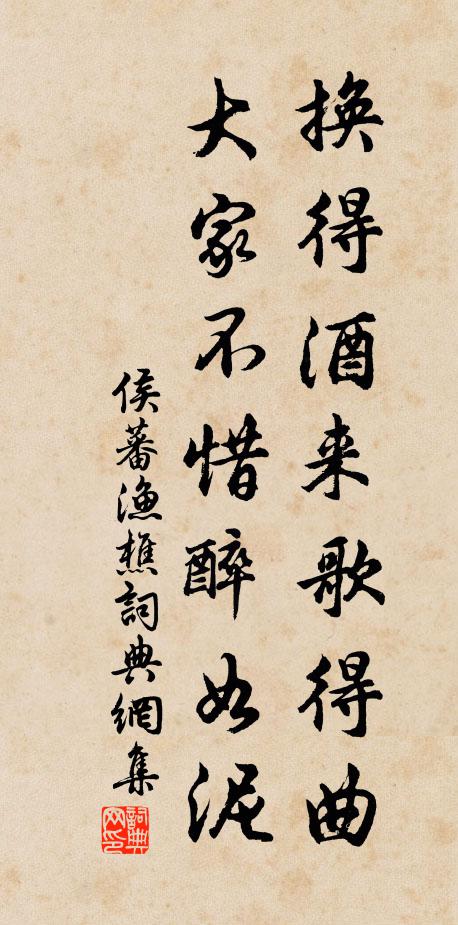 换得酒来歌得曲
大家不惜醉如泥
侯蕃渔樵詞典網集
詞典网印